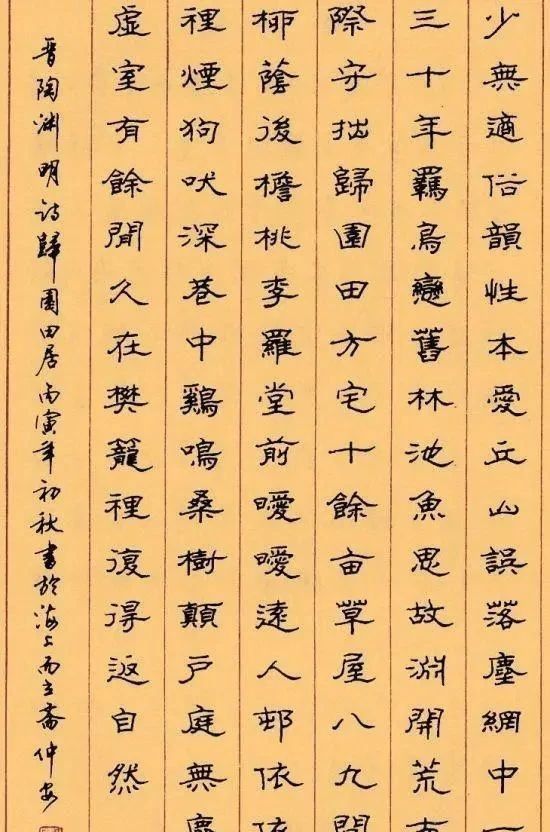 少無適俗韻性本愛丘山誤落塵網中一
三十年羈鳥戀舊林池魚思故淵開荒
際守拙歸園田方宅十餘亩草屋八九間
柳蔭後檐桃李羅堂前曖曖遠人邨依依
裡煙狗吠深巷中鷄鳴桑樹顛戶庭無塵
虛室有餘閒久在樊籠裡復得返自然
晉陶淵明詩歸園田居丙寅年初秋書於海上而立齋仲安